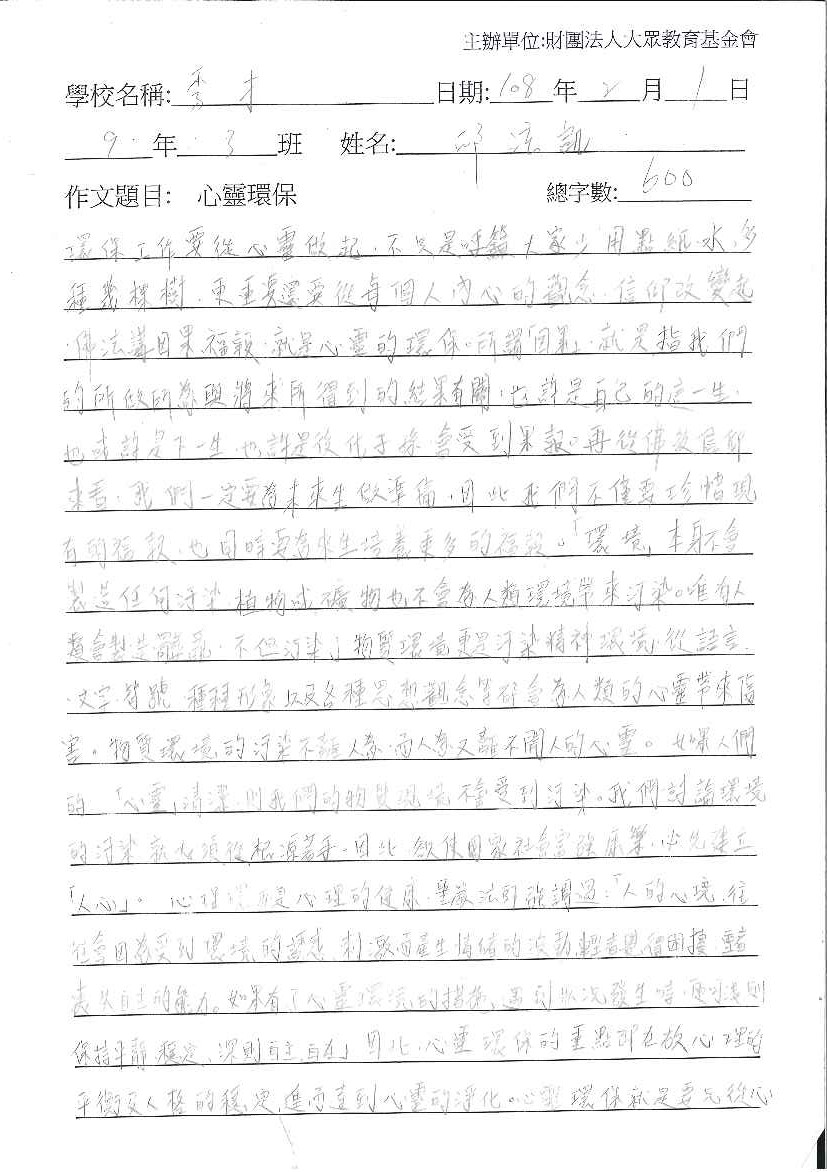 主辦單位:財團法人大眾教育基金會
學校名稱: 秀才 日期: 108 年 2 月 1 日
9 年 3 班 姓名: 邱 凱
作文題目: 心靈環保 總字數: 600
環保工作要從心靈做起,不只是呼籲大家少用點紙、水,多
種幾棵樹,更重要還要從每個人內心的觀念、信仰改變起
,佛法講因果福報,就是心靈的環保。所謂「因果」,就是指我們
的所做所為與將來所得到的結果有關,也許是自己的這一生,
也或許是下一生,也許是後代子孫,會受到果報。再從佛教信仰
來看,我們一定要為未來生做準備,因此我們不僅要珍惜現
有的福報,也同時要為來生培養更多的福報。「環境」本身不會
製造任何汙染,植物或礦物也不會為人類環境帶來汙染。唯有人
類會製造髒亂,不但汙染了物質環境更是汙染精神環境,從語言、
文字、符號,種種形象以及各種思想觀念等都會為人類的心靈帶來傷
害。物質環境的汙染不離人為,而人為又離不開人的心靈。如果人們
的「心靈」清潔,則我們的物質環境不會受到汙染。我們討論環境
的汙染就必須從根源著手,因此欲使國家社會富強康樂,必先建立
「人心」。心理環保是心理的健康,聖嚴法師強調過:「人的心境,往
往會因為受到環境的誘惑、刺激而產生情緒的波動,輕者 困擾,重者
喪失自主的能力。如果有了心靈環保的措施,遇到狀況發生時,便可淺則
保持平靜、穩定,深則自主、自在」因此,心靈環保的重點即在於心理的
平衡及人格的穩定,進而達到心靈的淨化。心靈環保就是要先從心